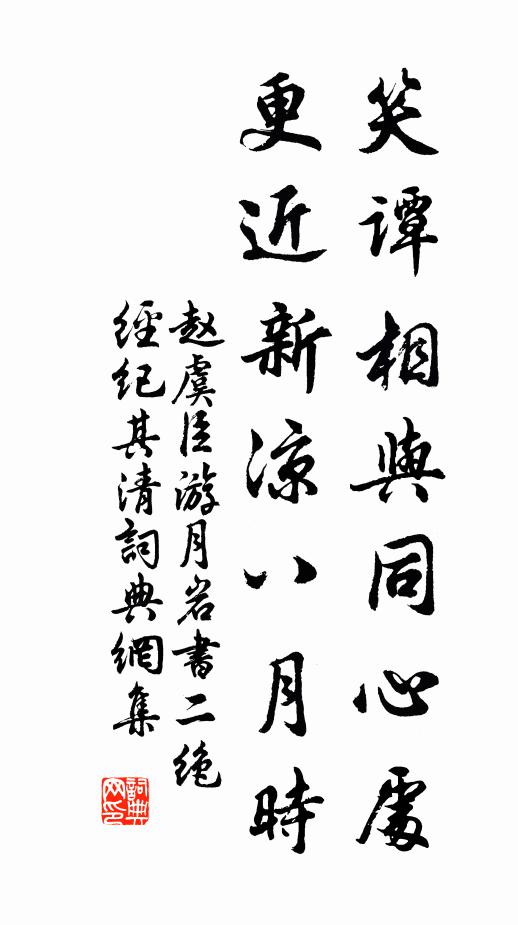 笑谭相與同心處
更近新涼八月時
赵虞臣游月岩書二绝
經纪其清詞典網集
詞典
网印